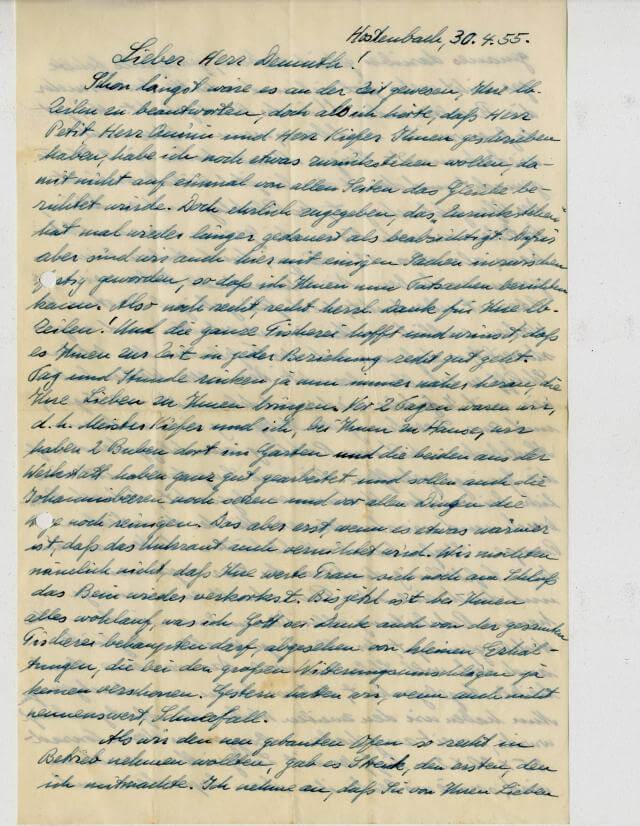 Hostenbach, 30.4.55.
Lieber Herr Demuth!
Schon längst wäre es an der Zeit gewesen, Ihre lb.
Zeilen zu beantworten, doch als ich hörte, daß Herr
Petit Herr und Herr Kiefer Ihnen geschrieben
haben, habe ich noch etwas zurückstehen wollen, da-
mit nicht auf einmal von allen Seiten das Gleiche be-
richtet würde. Doch ehrlich zugegeben, das Zurückstehen
hat mal wieder länger gedauert als beabsichtigt. Dafür
aber sind wir auch hier mit einigen Sachen inzwischen
geworden, so daß ich Ihnen nun Tatsachen berichten
kann. Also noch recht, recht herzl. Dank für Ihre lb.
Zeilen! Und die ganze Tischerei hofft und wünscht, daß
es Ihnen zur Zeit in jeder Beziehung recht gut geht.
Tag und Stunde rücken ja nun immer näher heran, die
Ihre Lieben zu Ihnen bringen. Vor 2 Tagen waren wir,
d. h. Meister Kiefer und ich, bei Ihnen zu Hause, wir
haben 2 Buben dort im Garten und die beiden aus der
Werkstatt haben ganz gut gearbeitet und sollen auch die
Johannisbeeren noch setzen und vor allen Dingen die
noch reinigen. Das aber erst, wenn es etwas wärmer
ist, daß das Unkraut auch vernichtet wird. Wir möchten
nämlich nicht, daß Ihre werte Frau sich noch am Schluß
das Bein wieder verkorkst. Bis jetzt ist bei Ihnen
alles wohlauf, was ich Gott sei Dank auch von der gesamten
Tischerei behaupten darf, abgesehen von kleinen Erkäl-
tungen, die bei den großen Witterungsumschlägen ja
keinen verschonen. Gestern hatten wir, wenn auch nicht
nennenswert, Schneefall.
Als wir den neu gebauten Ofen so recht in
Betrieb nehmen wollten, gab es Streik, den ersten, den
ich mitmachte. Ich nehme an, daß Sie von Ihren Lieben